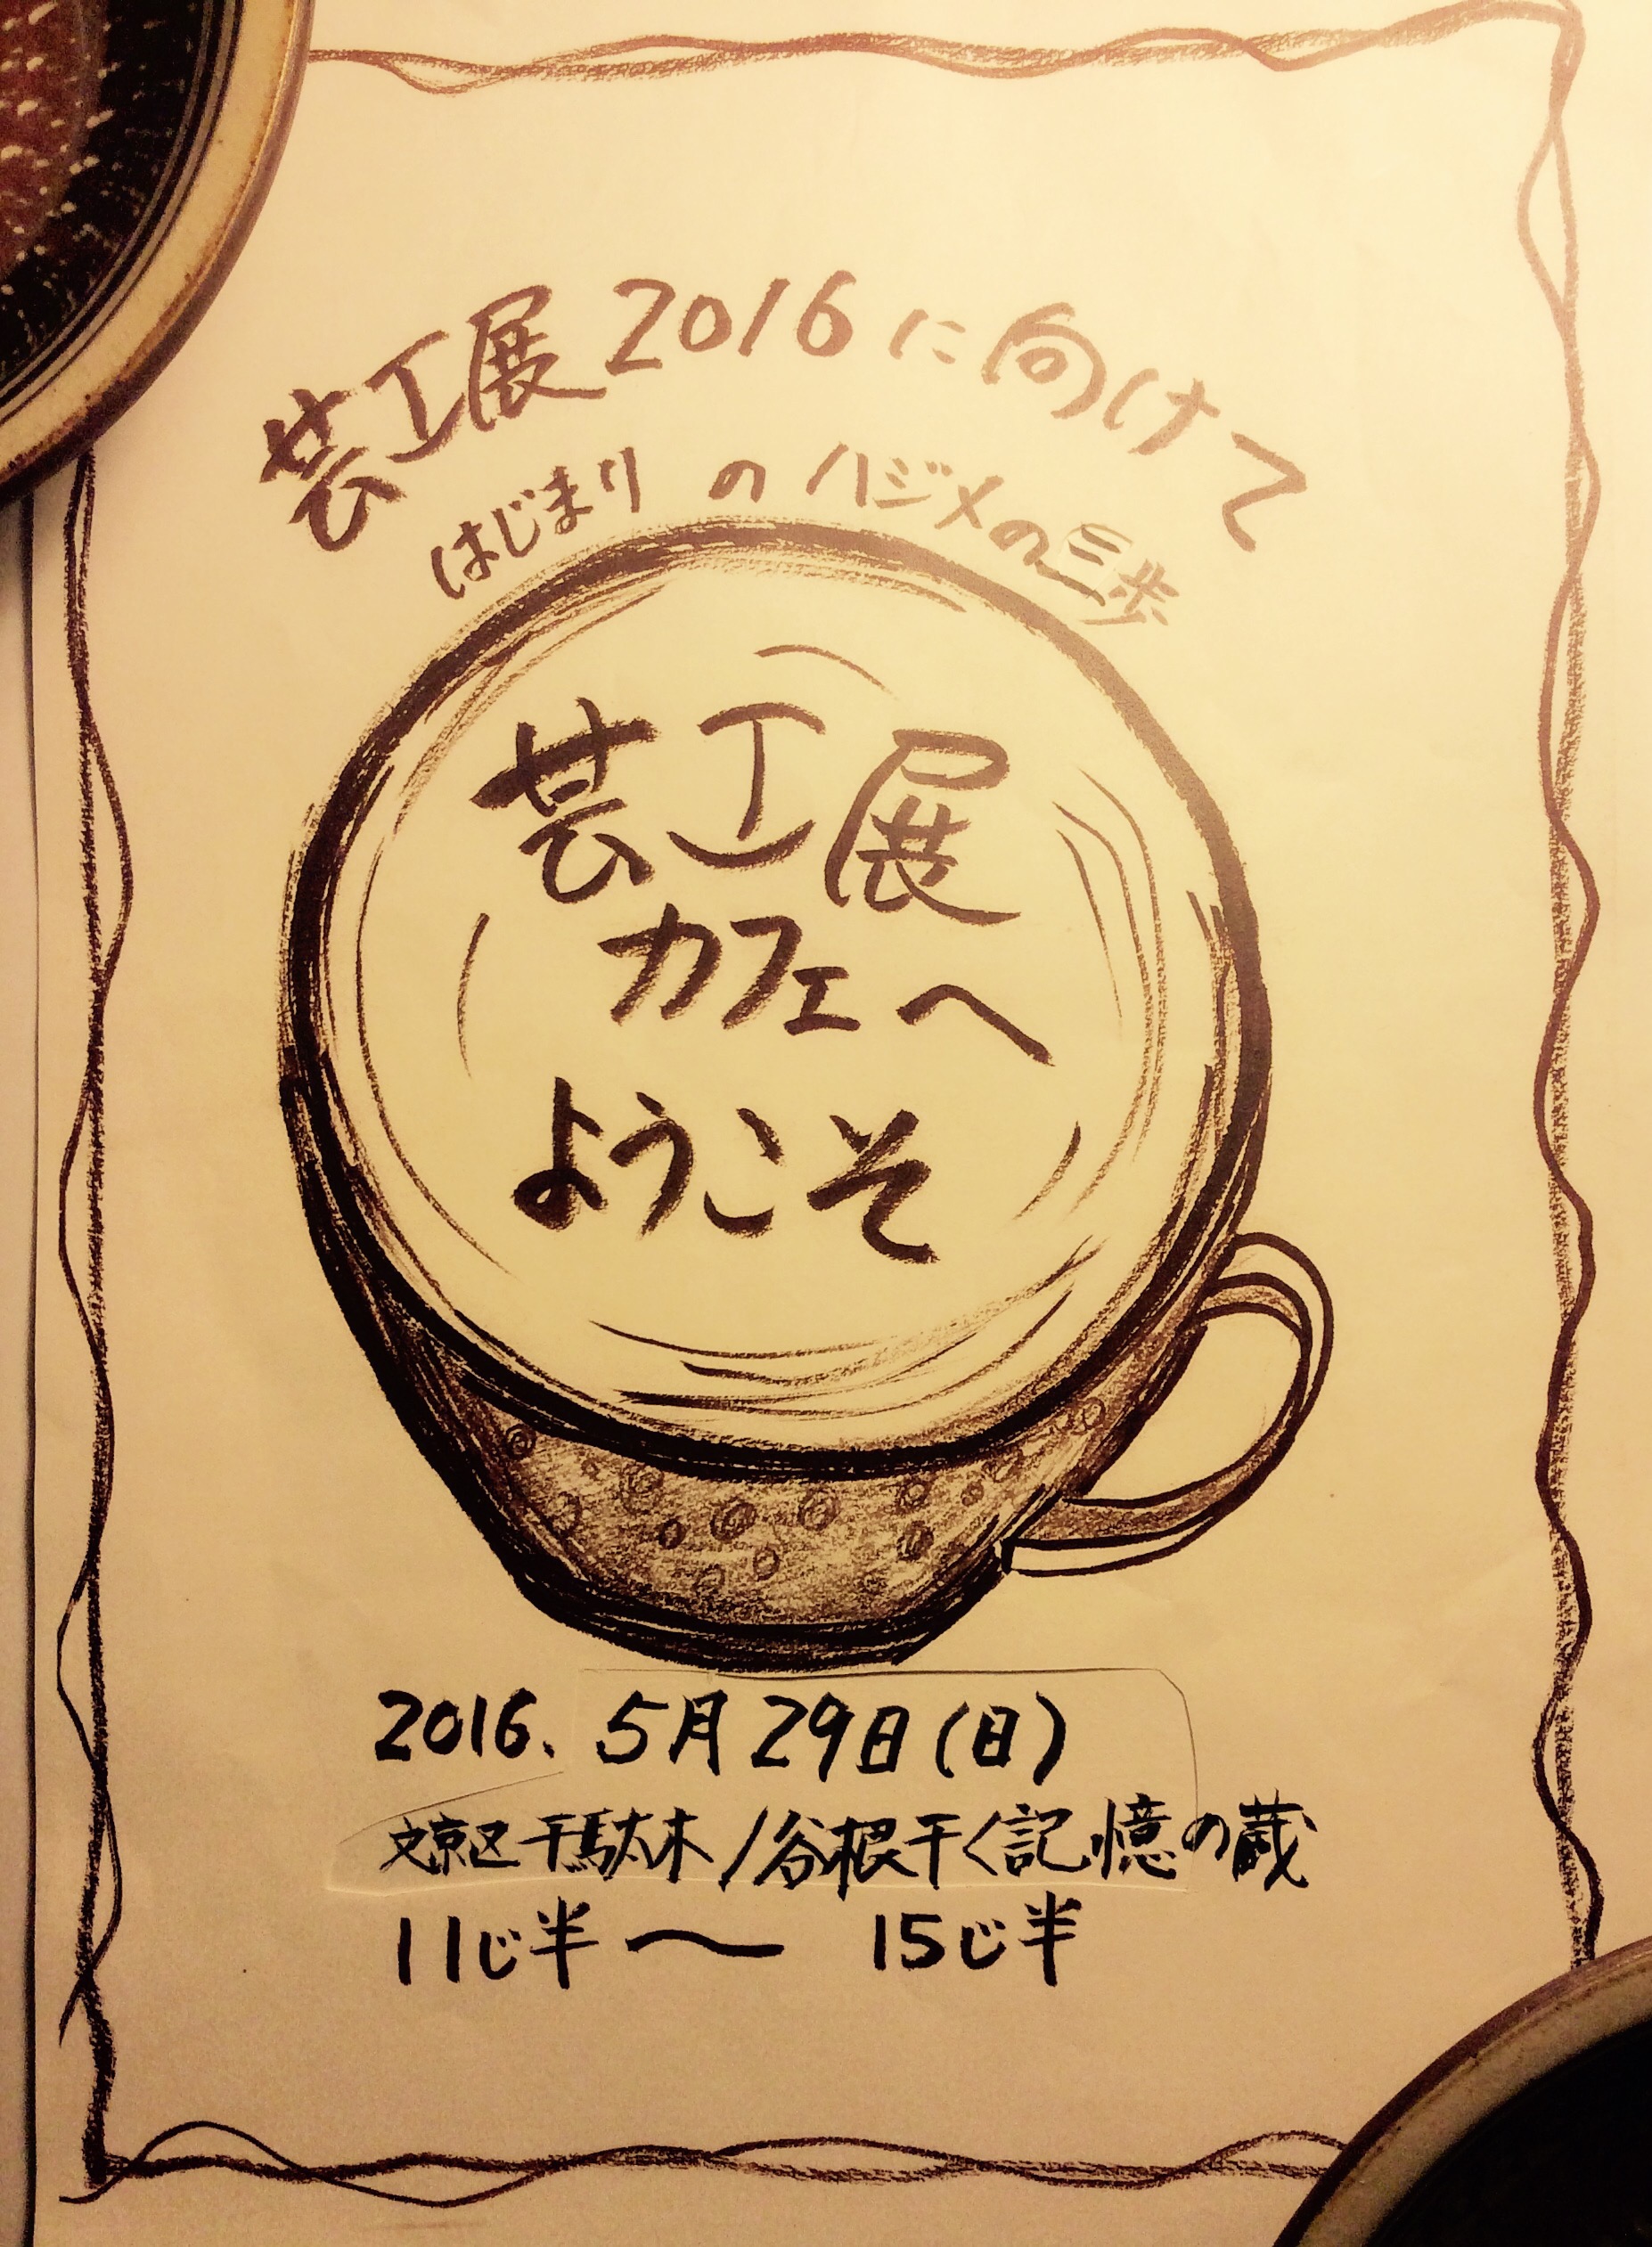 芸工展2016に向けて
はじまりのハジメの三歩
芸工展
カフェへ
ようこそ
2016. 5月29日(日)
文京区千駄木/谷根千〈記憶の蔵
11じ半〜 15じ半